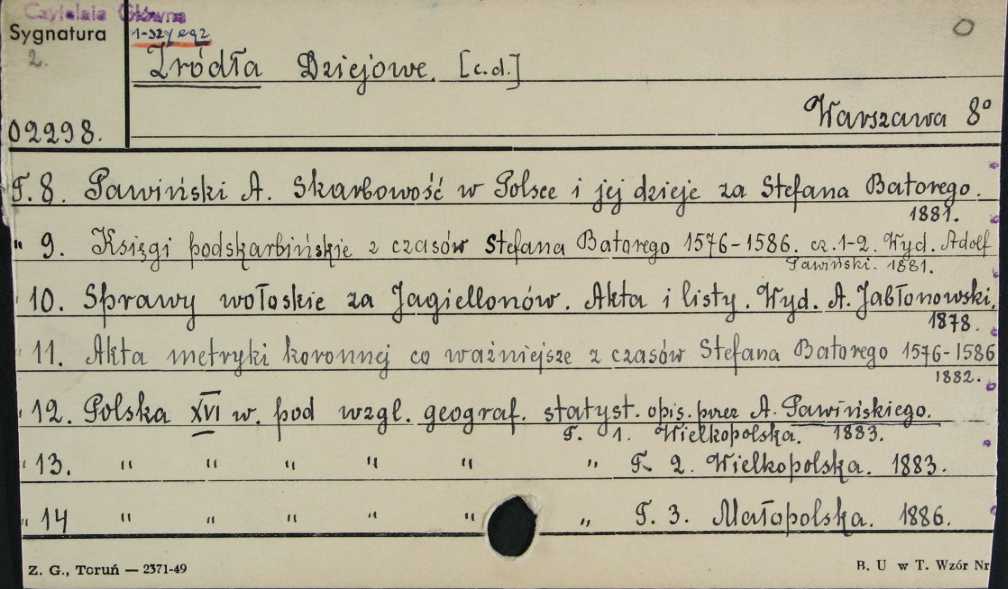 Czytelnia Główna
Sygnatura 1-szy egz
2.
Źródła Dziejowe. [c.d.]
Warszawa 8°
02298.
T. 8. Pawiński A. Skarbowość w Polsce i jej dzieje za Stefana Batorego.
1881.
" 9. Księgi podskarbińskie z czasów Stefana Batorego 1576-1586. cz. 1-2. Wyd. Adolf
Pawiński. 1881.
" 10. Sprawy wołoskie za Jagiellonów. Akta i listy. Wyd. A. Jabłonowski.
1878.
" 11. Akta metryki koronnej co ważniejsze z czasów Stefana Batorego 1576-1586
1882.
" 12. Polska XVI w. pod wzgl. geograf. statyst. opis. przez A. Pawińskiego.
T. 1. Wielkopolska. 1883.
" 13. " " " " " " T. 2. Wielkopolska. 1883.
" 14 " " " " " " T. 3. Małopolska. 1886.
Z. G., Toruń — 2371-49
B. U w T. Wzór Nr